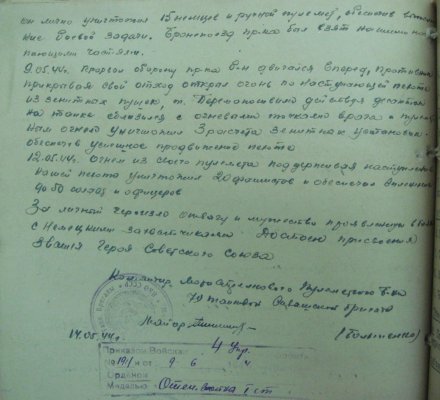 он лично уничтожил 15 немцев и ручной пулемёт, обеспечив
боевой задачи. Бронепоезд пр-ка был взят нашими на-
частями.
9.05.44г. оборону пр-ка двигался вперед, Противник
прикрывая свой отход открыл огонь по наступающей пехоте
из зенитных пушек, т. действуя десантом
на танке сблизился с огневыми точками врага и
огнем уничтожил 3 расчета зенитных установок
обеспечив успешное продвижение пехоты
12.05.44г. Огнем из своего пулемета поддерживая наступление
нашей пехоты уничтожил 20 фашистов и обеспечил
до 50 солдат и офицеров
За личный героизм отвагу и мужество проявленные в боях
с Немецкими захватчиками достоин присвоения
звания Героя Советского Союза
Командир Мотострелкового Пулеметного б-на
79 танковой Сивашской бригады
Майор
14.05.44г.
4 Укр.
Приказом Войскам
№ 191/н от 9 6 4
Орденом
Медалью Отеч. война I ст.